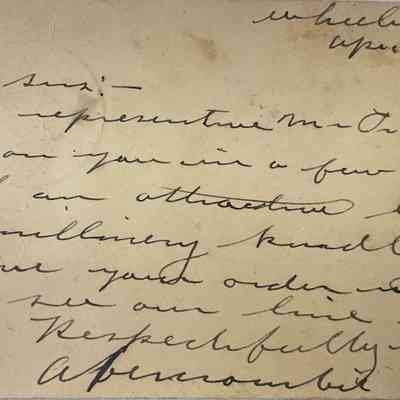 Wheeli
Apri
Sirs:—
representative Mr
on you in a few
an attractive
millinery
your order
see our line
Respectfully
Abercrombie